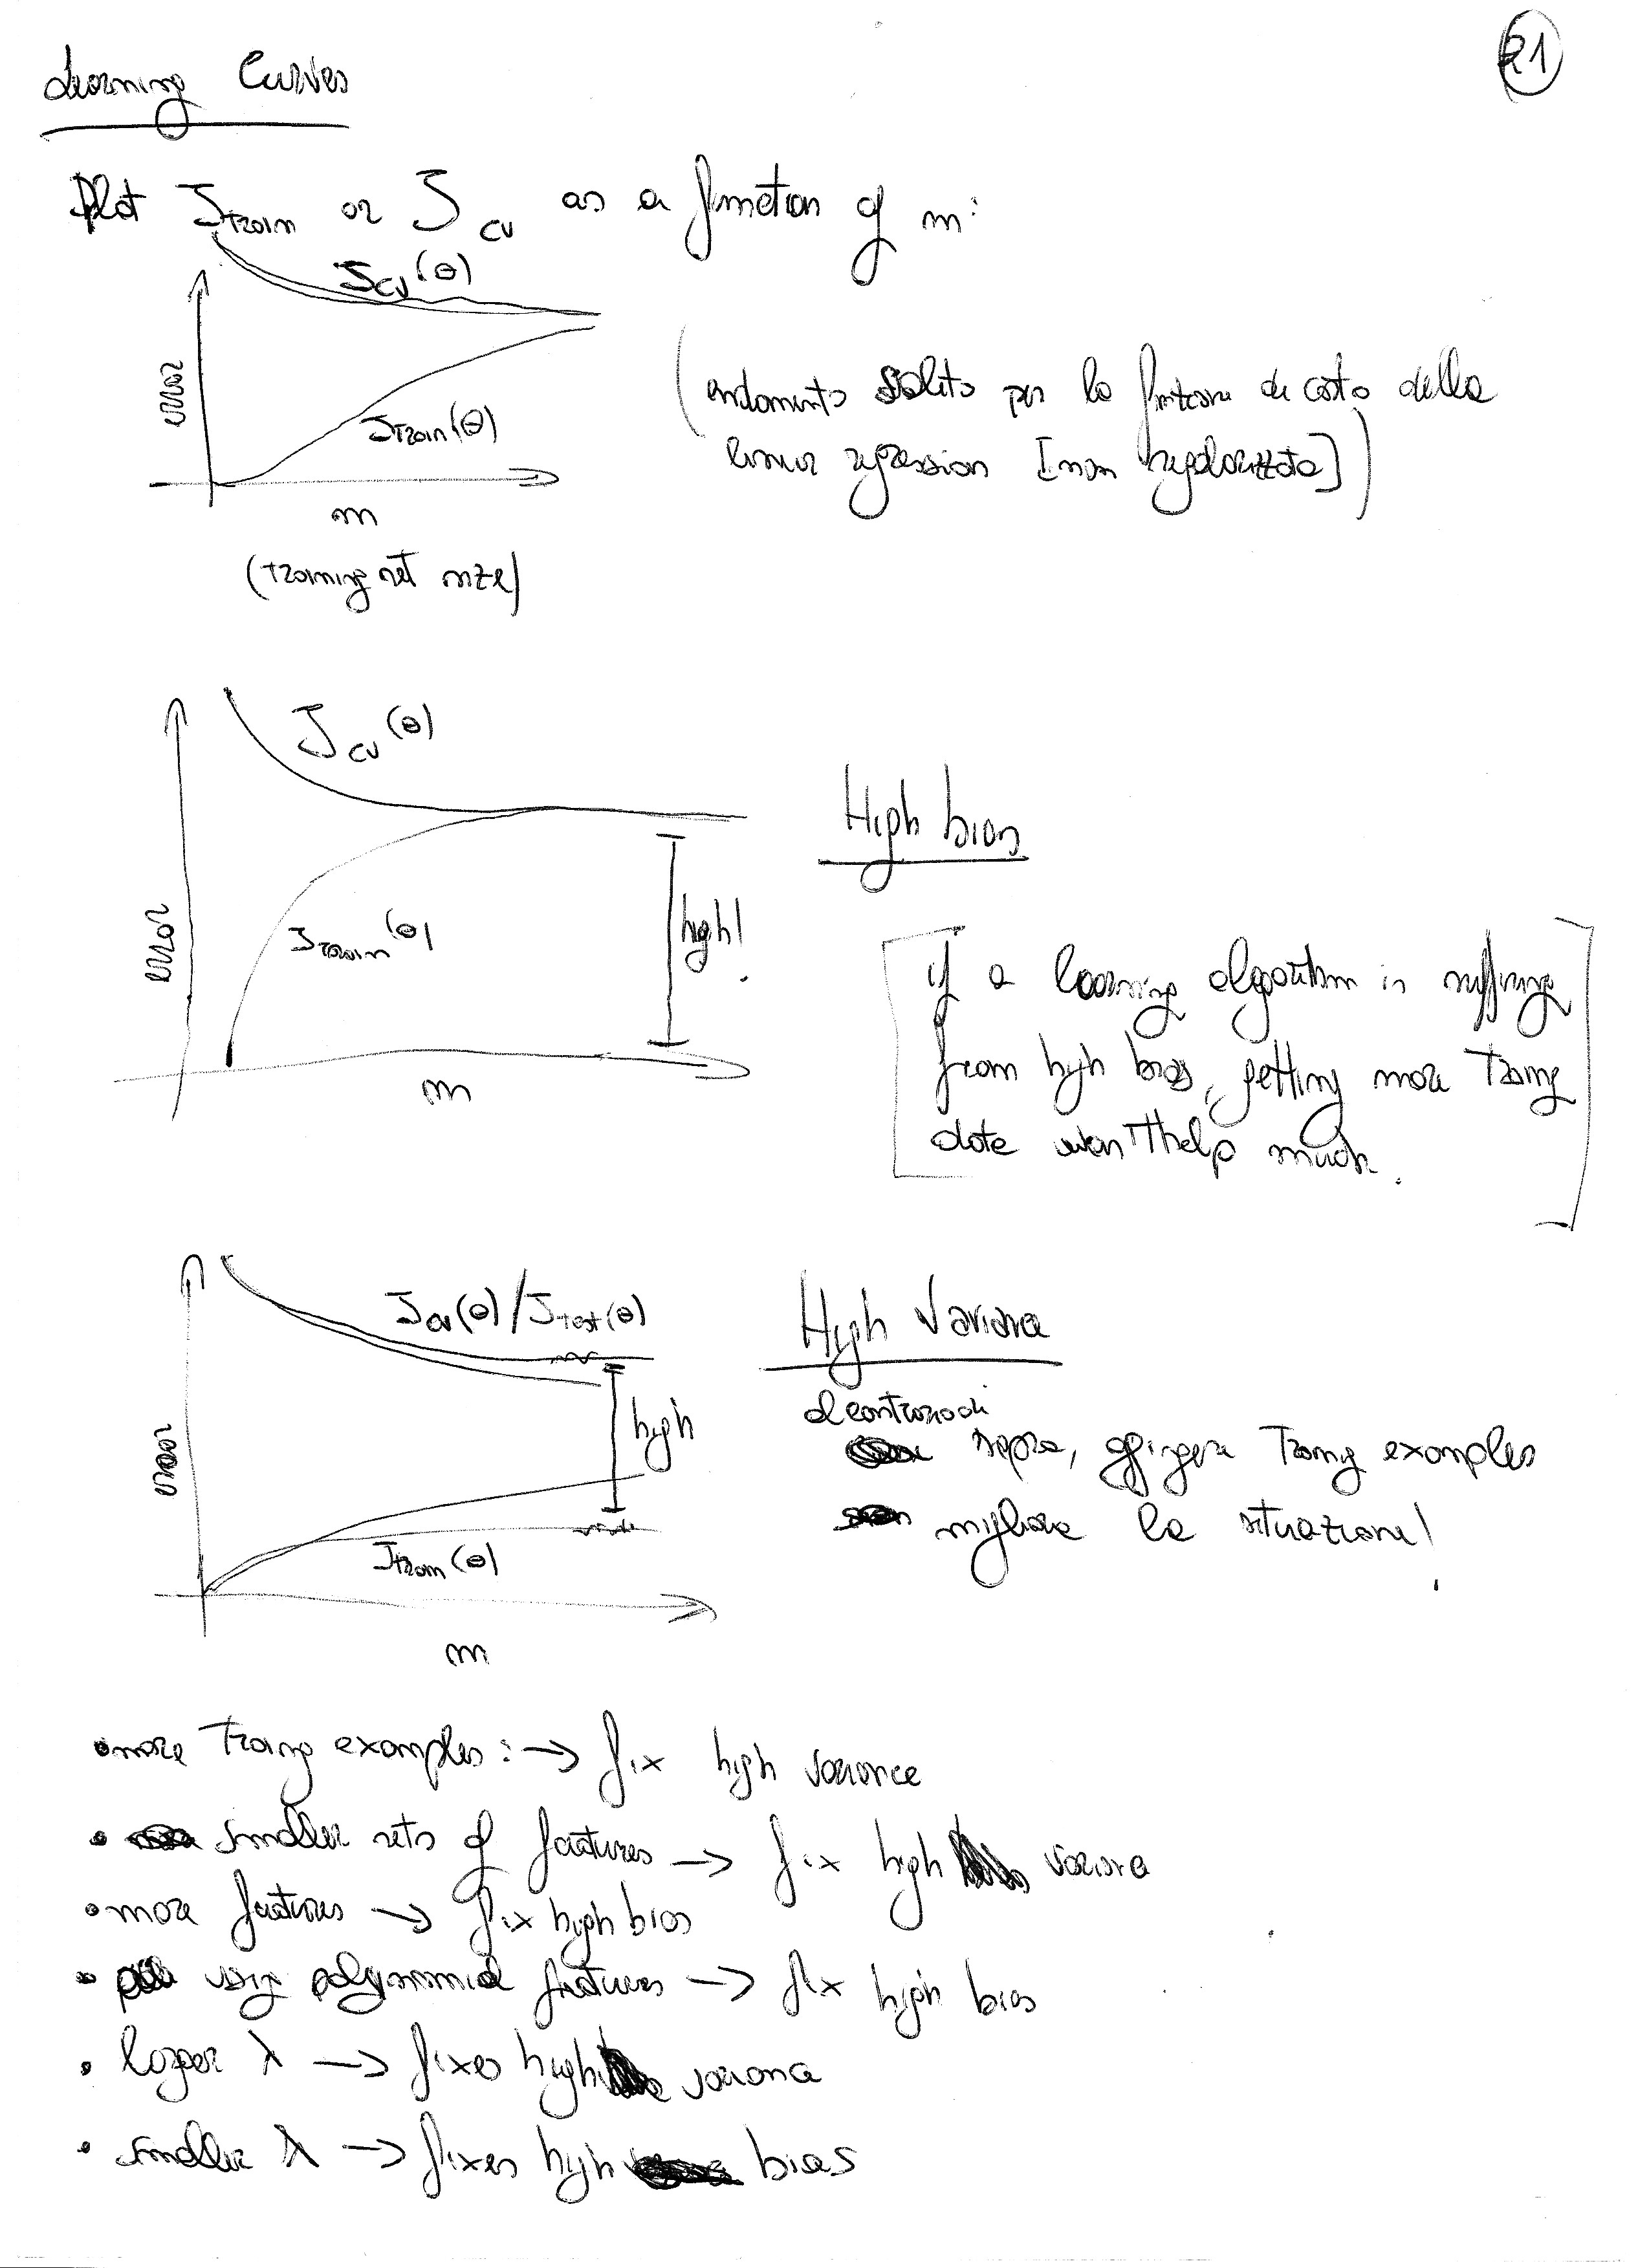 21
Learning Curves
Plot J train or J cv as a function of m:
J cv (θ)
error
J train (θ)
m
(training set size)
(andamento solito per la funzione di costo della
linear regression [non regolarizzata])
J cv (θ)
error
J train (θ)
high!
m
High bias
[if a learning algorithm is suffering
from high bias, getting more training
data won't help much.]
J cv (θ) / J test (θ)
error
high
J train (θ)
m
High Variance
al contrario di
sopra, aggiungere training examples
migliora la situazione!
• more training examples: → fix high variance
• smaller sets of features → fix high variance
• more features → fix high bias
• using polynomial features → fix high bias
• larger λ → fixes high variance
• smaller λ → fixes high bias